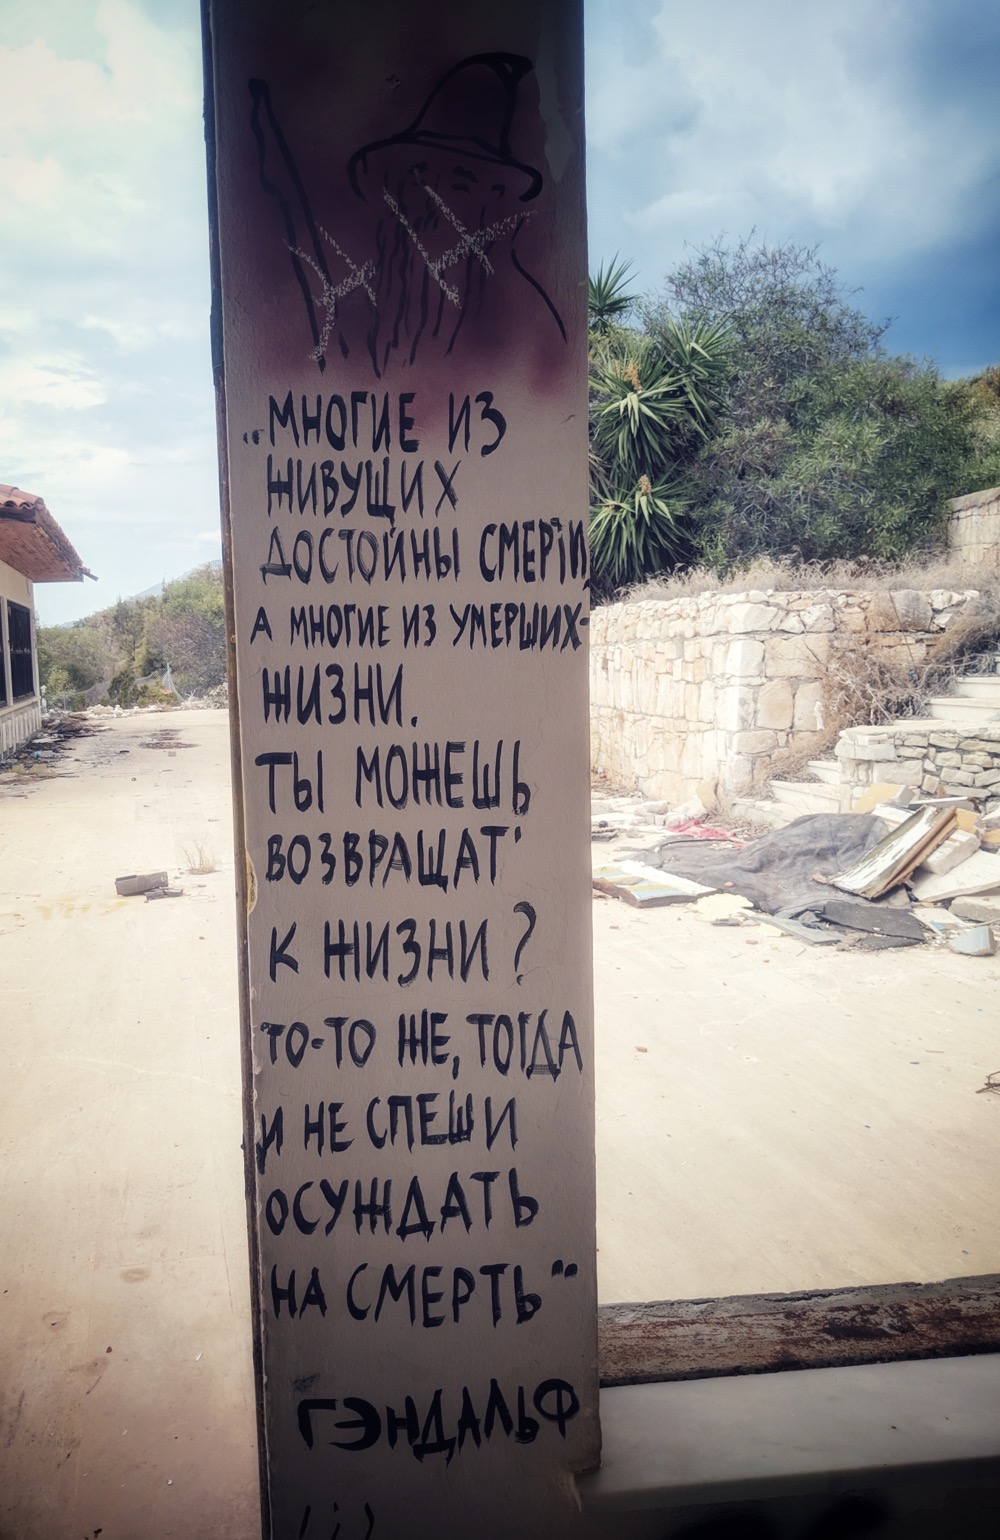 „МНОГИЕ ИЗ
ЖИВУЩИХ
ДОСТОЙНЫ СМЕРТИ,
А МНОГИЕ ИЗ УМЕРШИХ-
ЖИЗНИ.
ТЫ МОЖЕШЬ
ВОЗВРАЩАТ'
К ЖИЗНИ?
ТО-ТО ЖЕ, ТОГДА
И НЕ СПЕШИ
ОСУЖДАТЬ
НА СМЕРТЬ"
ГЭНДАЛЬФ